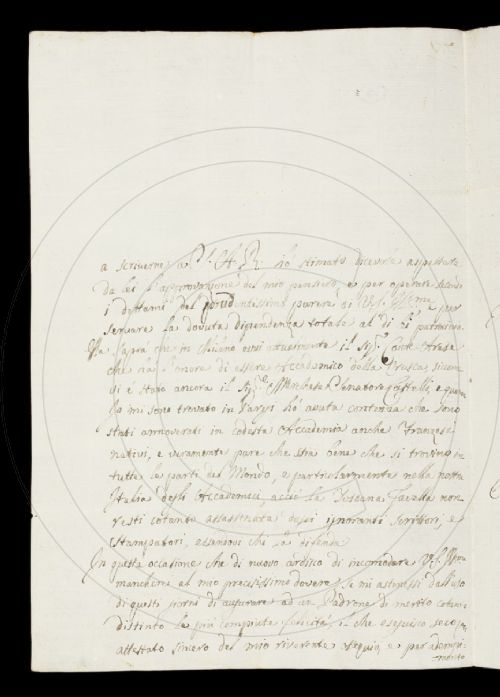 a scrivermi a S. A. R. hò stimato dicevole aspettare
da lei l'approvazione del mio pensiero, e per operare secondo
i dettami del prudentissimo parere di
servare la dovuta dipendenza totale al di
sapra che in Milano evvi attualmente il Sig. Conte Arese
che ha l'onore di essere Accademico della Crusca, siccome
vi è stato ancora il Sig. Senatore e quando
io mi sono trovato in Parigi hò avuta contezza che sono
stati annoverati in codesta Accademia anche Franzesi
nativi, e veramente pare che stia bene che si trovino in
tutte le parti del Mondo, e particolarmente nella nostra
Italia degli Accademici, acciò la Toscana favella non
resti cotanto assassinata dagli ignoranti scrittori, e
stampatori, essendovi chi la difenda
In questa occasione che di nuovo ardisco di incomodare V. S. Illma
mancherei al mio precisissimo dovere, se mi astenessi dall'uso
di questi giorni di augurare ad un Padrone di merito cotanto
distinto le più compiute felicità, il che eseguisco
attestato sincero del mio riverente ossequio, e per adempi-
mento